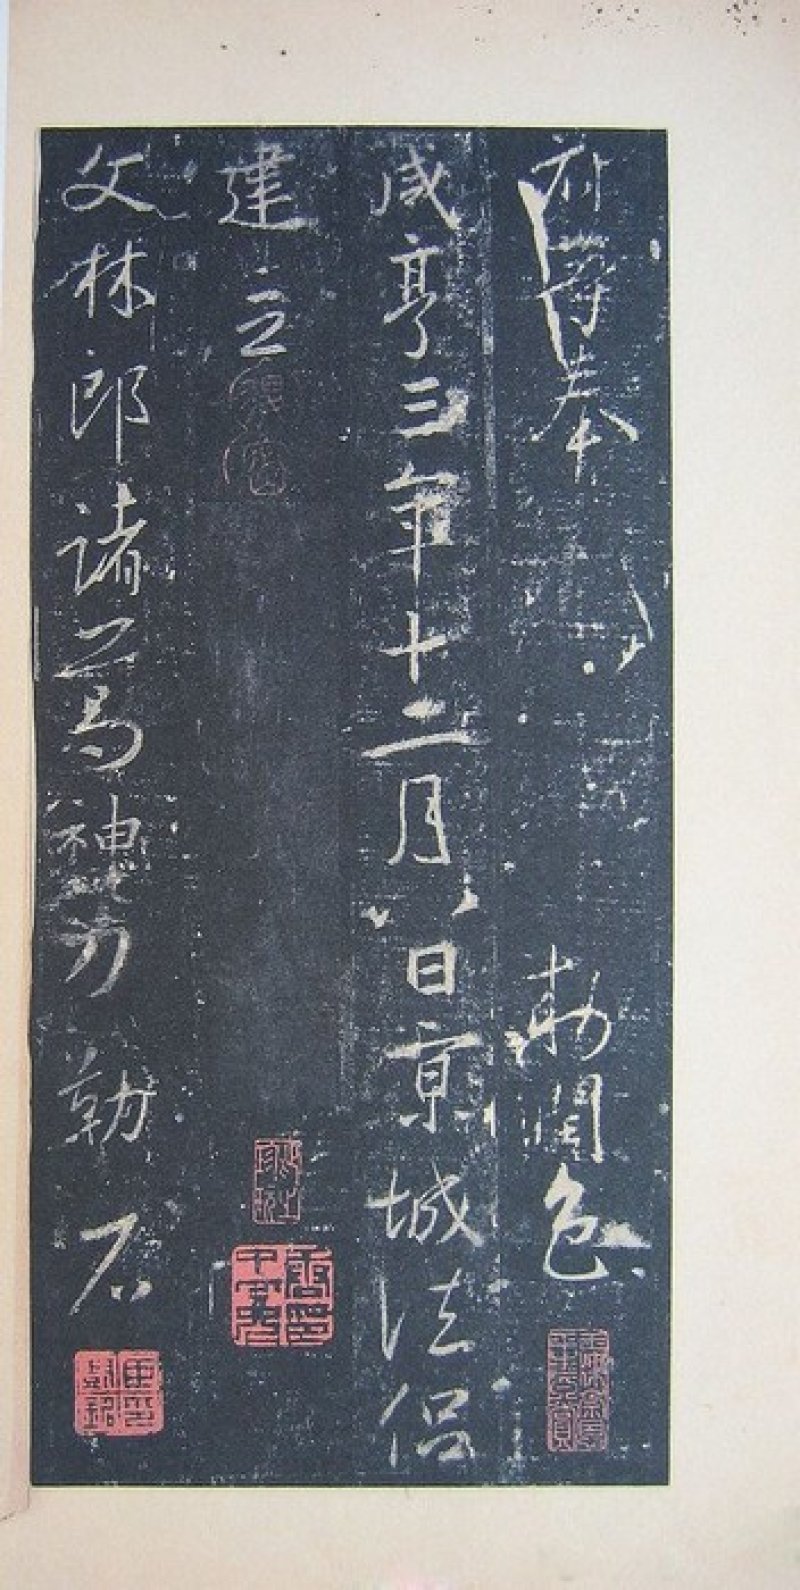 府等奉 勅潤色
咸亨三年十二月八日京城法侶
建立
文林郎諸葛神力勒石